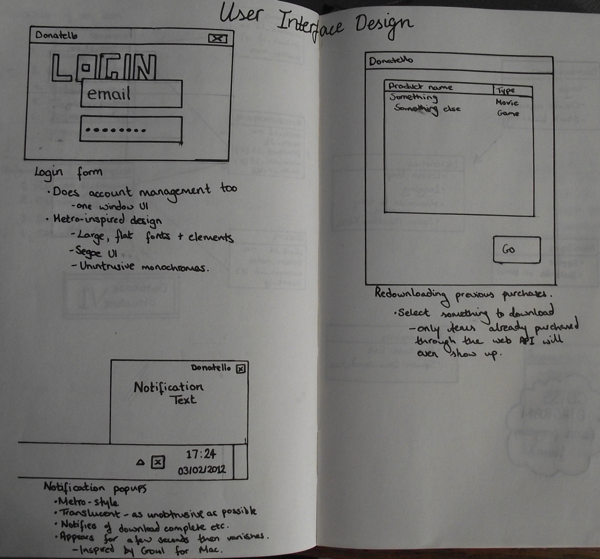 User Interface Design
Donatello
LOGIN
email
Login form
• Does account management too
- one window UI
• Metro-inspired design
- Large, flat fonts + elements
- Segoe UI
- Unintrusive monochromas.
Donatello
Notification
Text
17:24
03/02/2012
Notification popups
• Metro-style
• Translucent - as unobtrusive as possible
• Notifies of download complete etc.
• Appears for a few seconds then vanishes.
- Inspired by Growl for Mac.
Donatello
Product name Type
Something Movie
Something else Game
Go
Redownloading previous purchases.
• Select something to download
- only items already purchased
through the web API will
even show up.